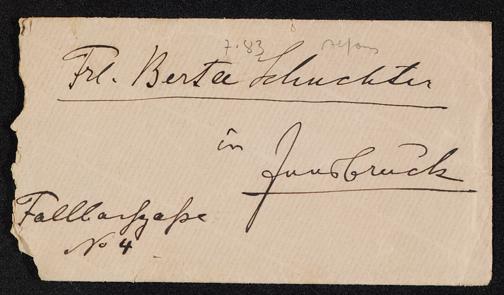 7.83
Frl. Berta Schuchter
in
Innsbruck
Fallbachgaße
No 4